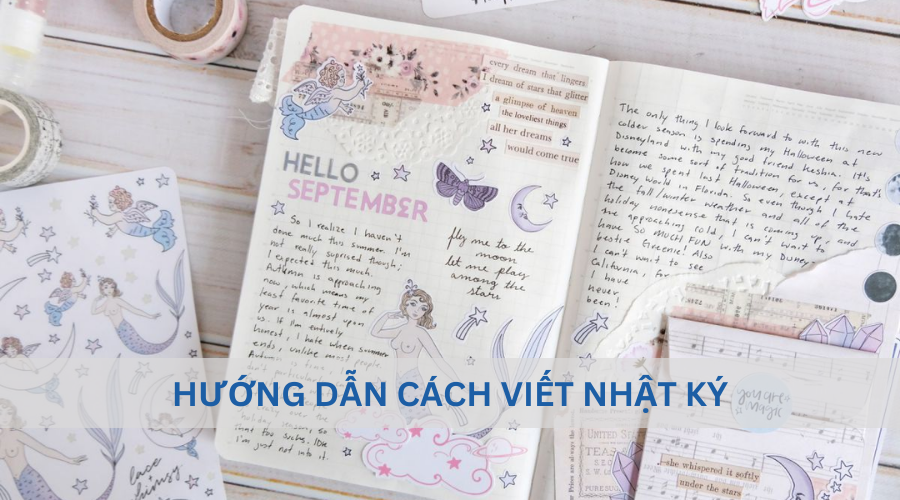 every dream that lingers
I dream of stars that glitter
a glimpse of heaven
the loveliest things
all her dreams
would come true
HELLO
SEPTEMBER
So I realize I haven't
done much this summer. I'm
not really suprised though;
I expected this much.
Autumn is approaching
now, which means my
least favorite time of
year is almost upon
us. If I'm entirely
honest, I hate when summer
ends, unlike most people.
I'm just not into it.
fly me to the
moon
let me play
among the
stars
The only thing I look forward to with this new
colder season is spending my Halloween at
Disneyland with my good friend Keshia. It's
become some sort of tradition for us, for that's
how we spent last Halloween, except at
Disney World in Florida. So even though I hate
the fall/winter weather and all of the
holiday nonsense that is coming up, and
the approaching cold, I can't wait to
have SO MUCH FUN with my Disney
bestie Greenie! Also
can't wait to see
California, for
I have
never
been!
HƯỚNG DẪN CÁCH VIẾT NHẬT KÝ
you are
magic
UNITED
TEAS
she whispered it softly
under the stars
lace